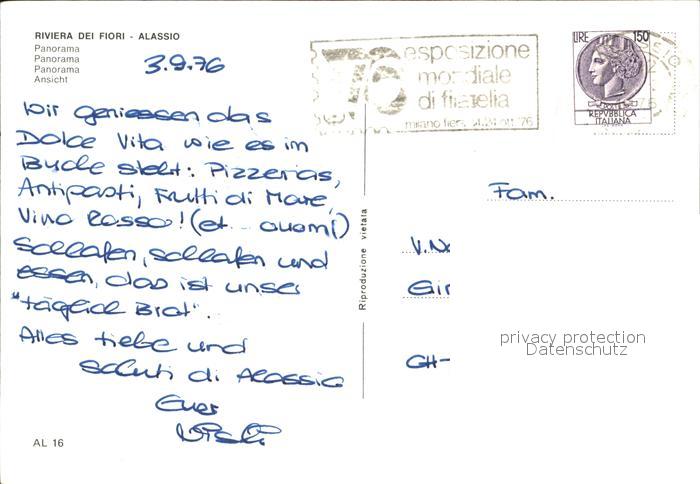 RIVIERA DEI FIORI - ALASSIO
Panorama
Panorama
Panorama
Ansicht
3.9.76
Wir geniessen das
Dolce Vita wie es im
Buche steht: Pizzerias,
Antipasti, Frutti di Mare,
Vino Rosso! (et ... auomi)
Schlafen, schlafen und
essen, das ist unser
"täglich Brot".
Alles Liebe und
saluti di Alassio
Euer
AL 16
Riproduzione vietata
76 esposizione
mondiale
di filatelia
milano fiera 14-24 ott '76
LIRE 150
REPVBBLICA
ITALIANA
Fam.
V.N
Gir
CH-
privacy protection
Datenschutz